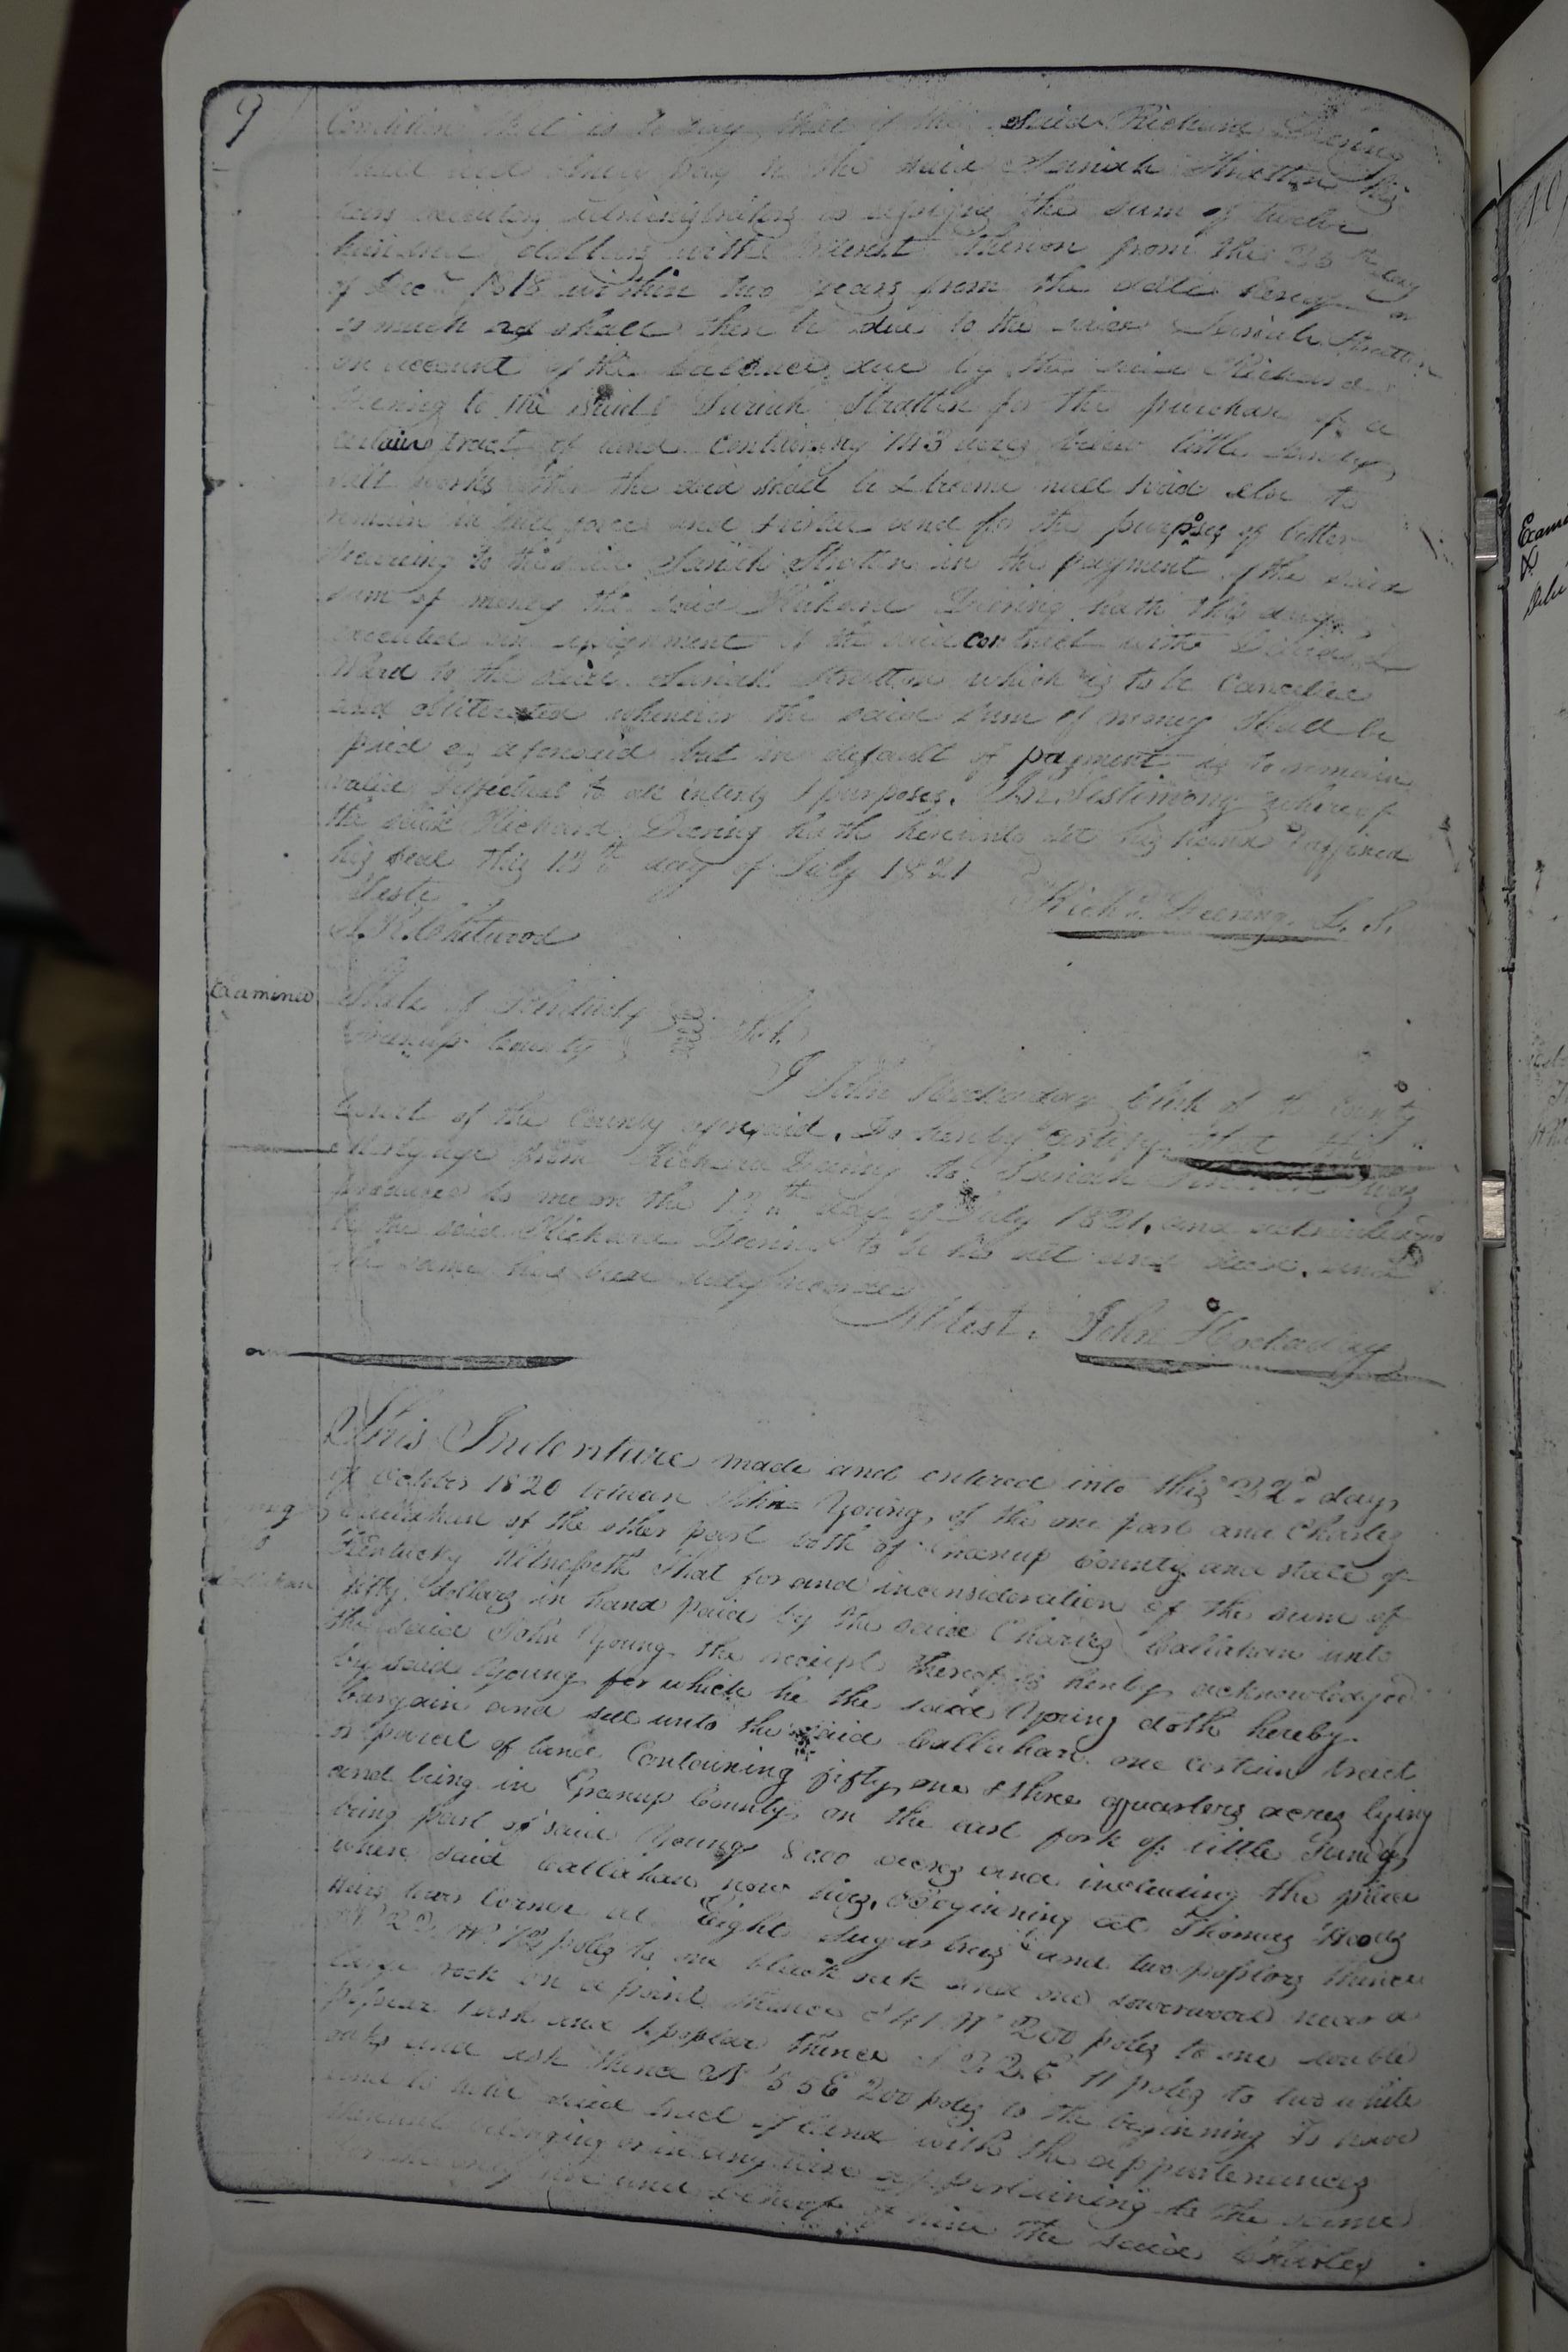 9
Condition that is to say that if the said Richard Deering
shall well and truly pay to the said Sariah Stratton his
heirs executors administrators or assigns the sum of twelve
hundred dollars with interest thereon from the 25th day
of Dec 1818 within two years from the date hereof or
so much as shall then be due to the said Sariah Stratton
on account of the balance due by the said Richard
Deering to the said Sariah Stratton for the purchase of a
certain tract of land containing 113 acres below little Sandy
salt works then the said shall be & become null & void else to
remain in full force and virtue and for the purposes of better
securing to the said Sariah Stratton in the payment of the said
sum of money the said Richard Deering hath this day
executed an assignment of the said contract with
Ward to the said Sariah Stratton which is to be cancelled
and obliterated whenever the said sum of money shall be
paid as aforesaid but in default of payment is to remain
valid & effectual to all intents & purposes. In Testimony whereof
the said Richard Deering hath hereunto set his hand & affixed
his seal this 13th day of July 1821
Teste
Richd. Deering L. S.
Chitwood
Examined
State of Kentucky
Greenup County Sct.
I John Hockaday Clerk of the County
Court of the County aforesaid, Do hereby certify that this
mortgage from Richard Deering to Sariah Stratton was
produced to me on the 13th day of July 1821, and acknowledged
by the said Richard Deering to be his act and deed, and
the same has been duly recorded
Attest. John Hockaday
This Indenture made and entered into this 22d day
of October 1820 between John Young, of the one part and Charles
Callahan of the other part both of Greenup County and state of
Kentucky Witnesseth that for and in consideration of the sum of
fifty dollars in hand paid by the said Charles Callahan unto
the said John Young the receipt thereof is hereby acknowledged
by said Young for which he the said Young doth hereby
bargain and sell unto the said Callahan one certain tract
or parcel of land Containing fifty one & three quarters acres lying
and being in Greenup County on the east fork of little Sandy
being part of said Youngs 8000 acres and including the place
where said Callahan now lives, Beginning at Thomas
lower Corner at Eight sugar trees and two poplars thence
N 22 W 72 poles to one black oak and one sourwood near a
large rock on a point thence S 41 W 200 poles to one double
poplar 1 ash and 1 poplar thence S 22 E 11 poles to two white
oaks and ash thence N 55 E 200 poles to the beginning To have
and to hold said tract of land with the appurtenances
thereunto belonging or in any wise appertaining to the same
for the only use and behoof of him the said Charles